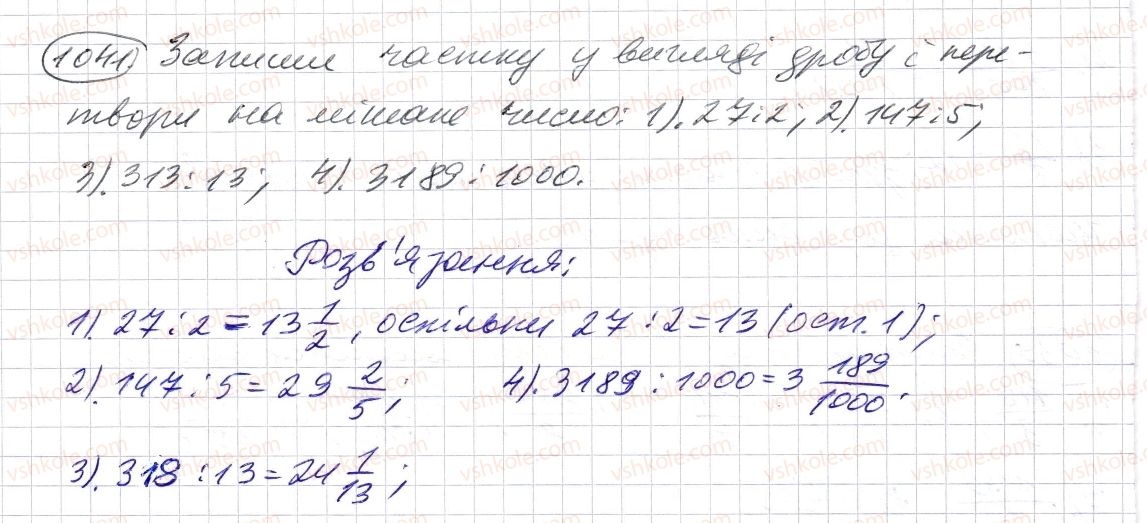 1041) Запиши частку у вигляді дробу і пере-
твори на мішане число: 1). 27:2; 2). 147:5;
3). 313:13; 4). 3189:1000.
Розв'язання:
1). 27:2=13 1/2, оскільки 27:2=13 (ост. 1);
2). 147:5=29 2/5; 4). 3189:1000=3 189/1000.
3). 318:13=24 1/13;